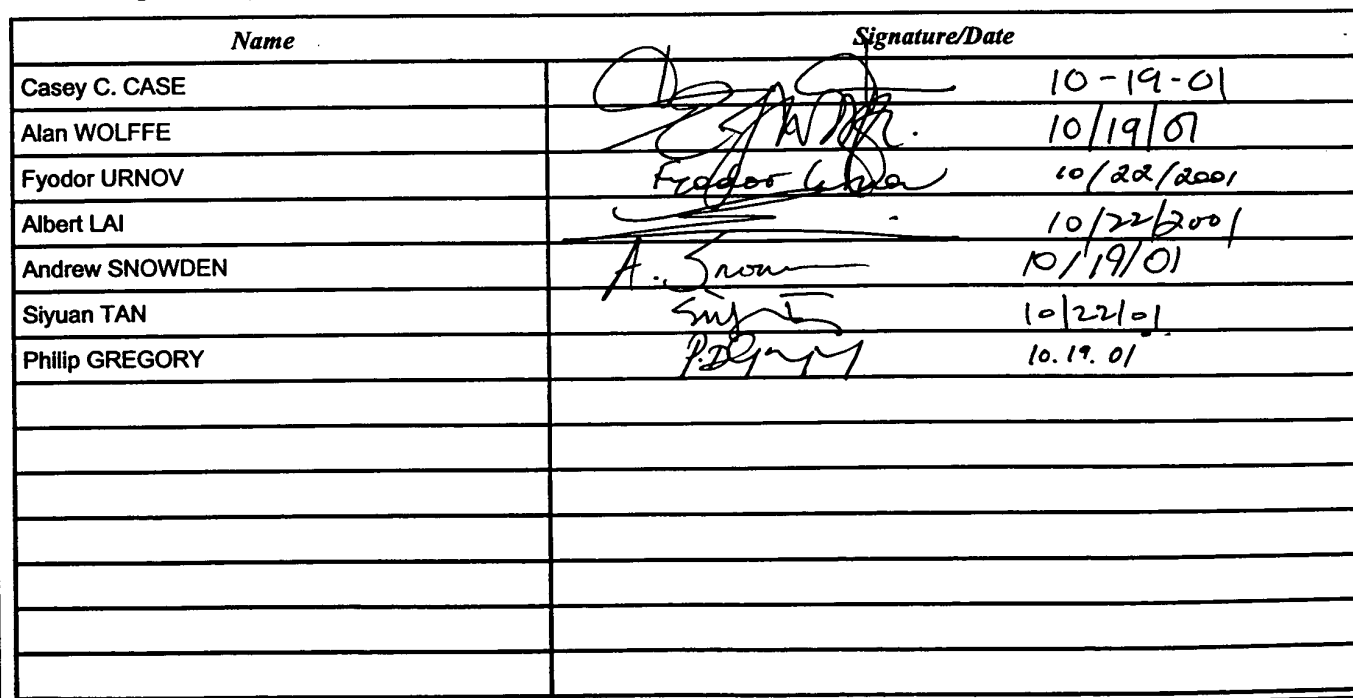 Name Signature/Date
Casey C. CASE 10-19-01
Alan WOLFFE 10/19/01
Fyodor URNOV Fyodor Urnov 10/22/2001
Albert LAI 10/22/2001
Andrew SNOWDEN A. Snow 10/19/01
Siyuan TAN 10/22/01
Philip GREGORY P.D. 10.19.01